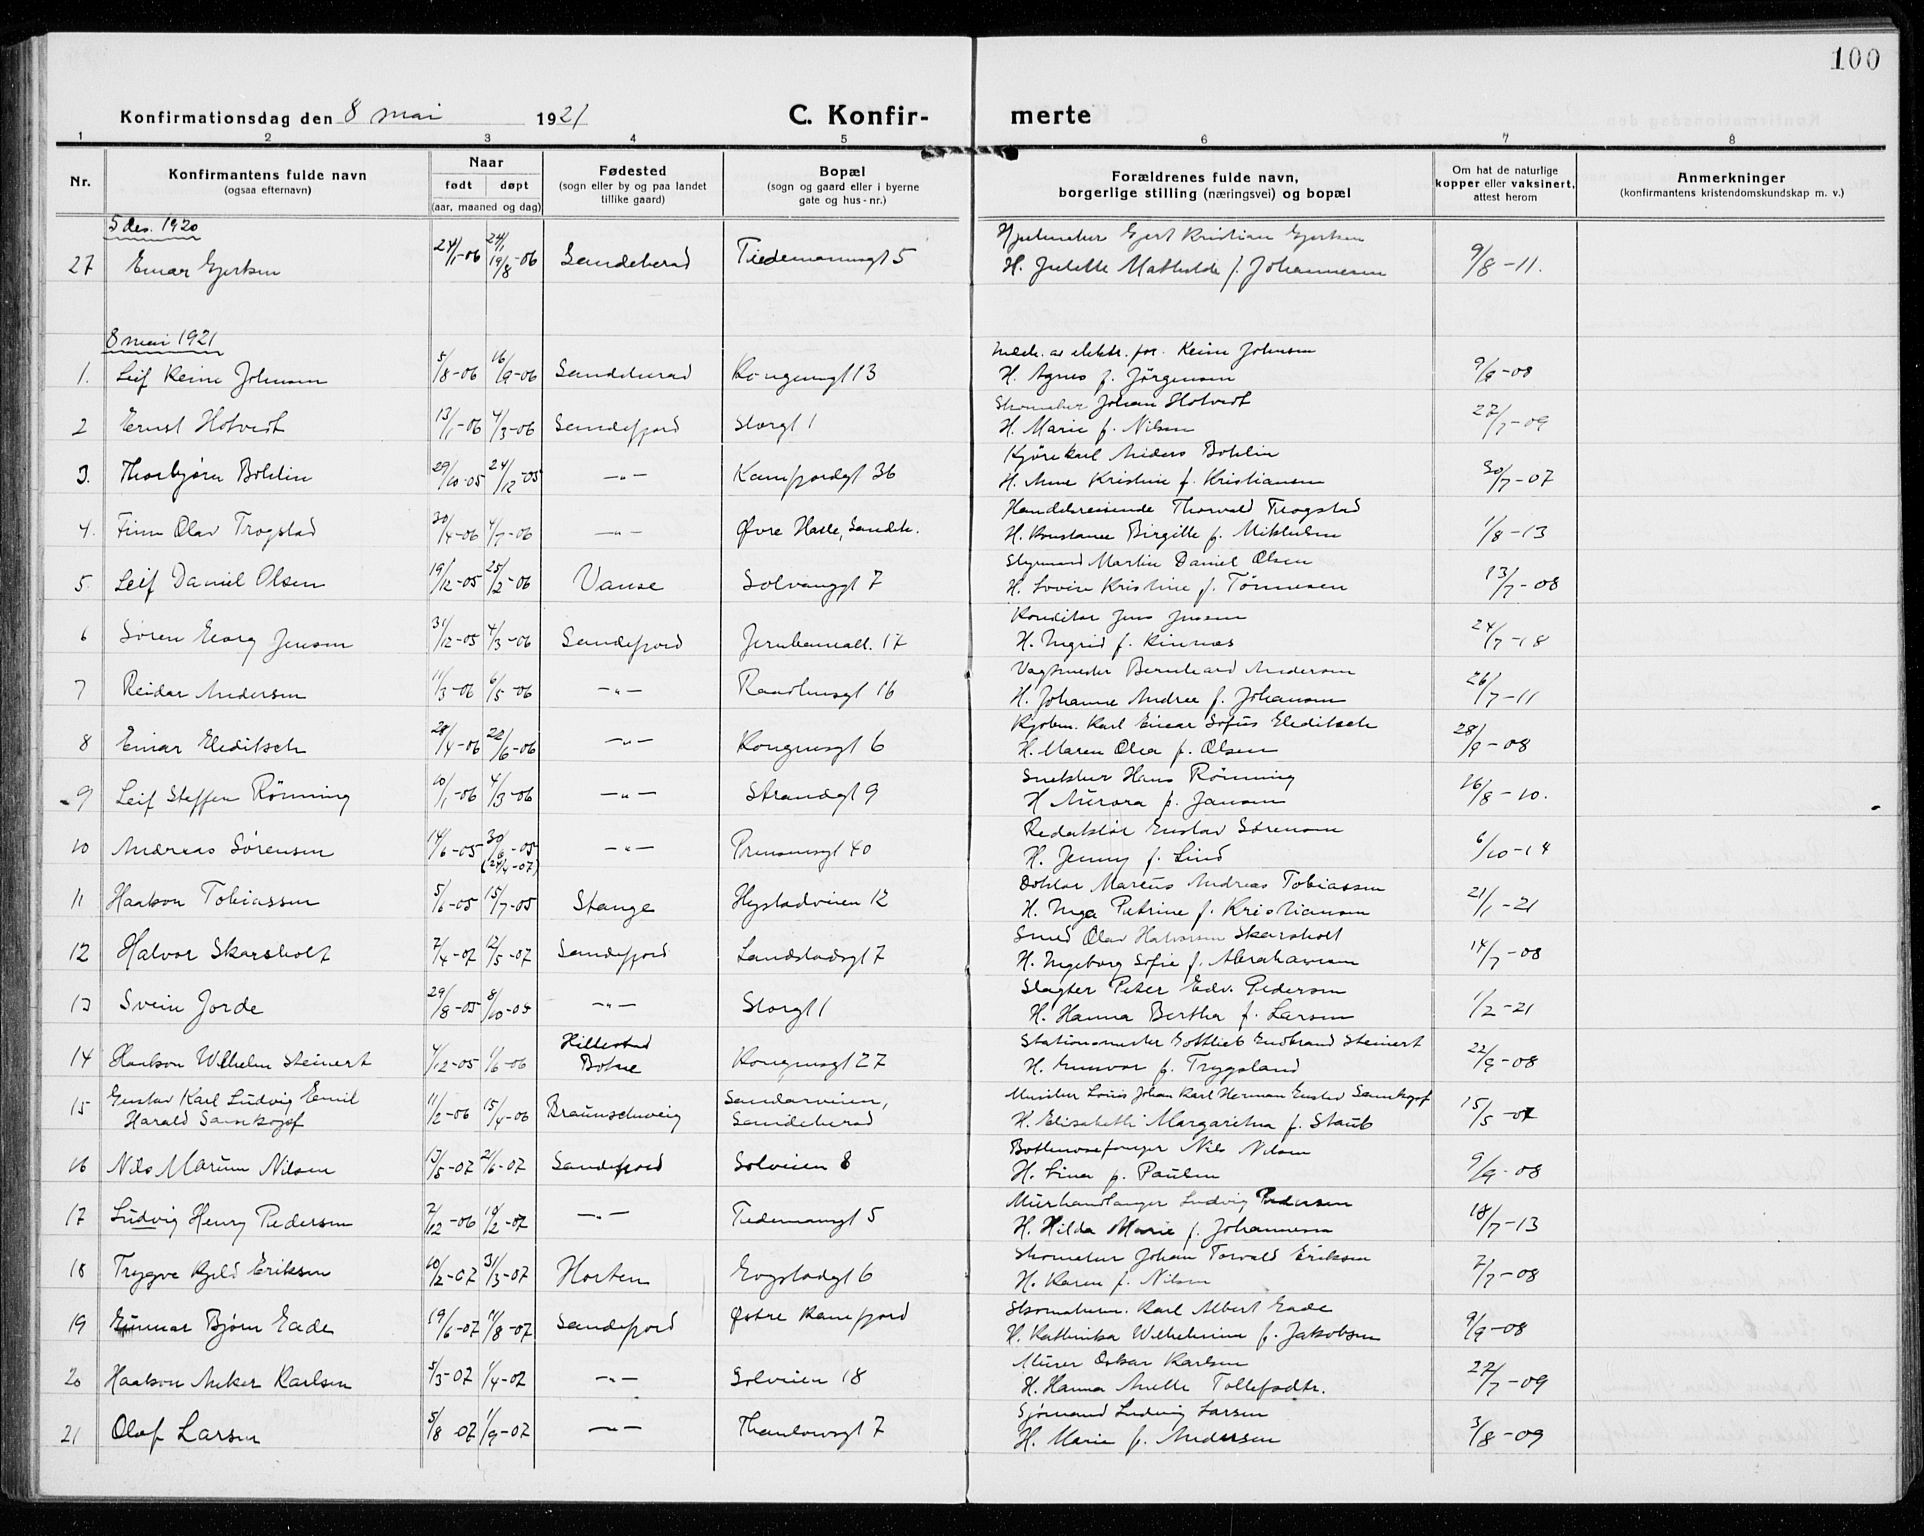 100
Konfirmationsdag den 8 mai 1921 C. Konfir- merte
1 2 3 4 5 6 7 8
Nr. Konfirmantens fulde navn (ogsaa efternavn) Naar født døpt (aar, maaned og dag) Fødested (sogn eller by og paa landet tillike gaard) Bopæl (sogn og gaard eller i byerne gate og hus-nr.) Forældrenes fulde navn, borgerlige stilling (næringsvei) og bopæl Om hat de naturlige kopper eller vaksinert, attest herom Anmerkninger (konfirmantens kristendomskundskap m. v.)
5 des. 1920
27 Einar Gjertsen 24/1-06 24/1 19/8-06 Sandeherad Tiedemannsgt 5 Gjert Kristian Gjertsen
H. Julette Mathilde f. Johannesen 9/8-11.
8 mai 1921
1. Leif Keim Johnsen 5/8-06 16/9-06 Sandeherad Kongensgt 13 Keim Johnsen
H. Agnes f. Jørgensen 9/9-08
2 Ernst Hotvedt 13/1-06 4/3-06 Sandefjord Storgt 1 Skomaker Johan Hotvedt
H. Marie f. Nilsen 27/7-09
3. Thorbjørn Bohlin 29/10-05 24/12-05 -"- Kamfjordgt 36 Kjørekarl Anders Bohlin
H. Anne Kristine f. Kristiansen 30/7-07
4. Finn Olav Trogstad 30/4-06 4/7-06 -"- Øvre Hasle, Sandeh. Handelsreisende Thorvald Trogstad
H. Konstance Birgitte f. Mikkelsen 1/8-13
5. Leif Daniel Olsen 19/12-05 25/2-06 Vanse Solvanggt 7 Styrmand Martin Daniel Olsen
H. Lovise Kristine f. Tønnesen 13/7-08
6 Søren Georg Jensen 31/12-05 4/3-06 Sandefjord Jernbaneall. 17 Konditor Jens Jensen
H. Ingrid f. Kinnas 24/7-18
7 Reidar Andersen 11/3-06 6/5-06 -"- Raadhusgt 16 Vagtmester Bernhard Andersen
H. Johanne Andrea f. Johansen 26/7-11
8 Einar Eleditsch 28/4-06 22/6-06 -"- Kongensgt 6 Kjøbm. Karl Einar Sofus Eleditsch
H. Maren Olea f. Olsen 28/9-08
9 Leif Steffen Rønning 10/1-06 4/3-06 -"- Strandgt 9 Snekker Hans Rønning
H Aurora f. Jansen 26/8-10.
10 Andreas Sørensen 14/6-05 30/6-05 (24/4-07) -"- Prinsensgt 40 Redaktør Gustav Sørensen
H. Jenny f. Lind 6/10-14
11 Haakon Tobiassen 5/6-05 15/7-05 Stange Hystadveien 12 Doktor Marius Andreas Tobiassen
H. Inga Petrine f. Kristiansen 21/1-21
12 Halvor Skarsholt 7/4-07 12/5-07 Sandefjord Landstadsgt 7 Smed Olav Halvorsen Skarsholt
H. Ingeborg Sofie f. Abrahamsen 14/7-08
13 Svein Jorde 29/8-05 8/10-05 -"- Storgt 1 Slagter Peter Edv. Pedersen
H. Hanna Bertha f. Larsen 1/2-21
14 Haakon Wilhelm Steinert 4/12-05 1/6-06 Hillestad Botne Kongensgt 27 Stationsmester Gottlieb Gudbrand Steinert
H. Gunvor f. Trygsland 22/9-08
15 Gustav Karl Ludvig Emil
Harald Samkopf 11/2-06 15/4-06 Braunschweig Sandarveien, Sandeherad Musiker Louis Johan Karl Herman Gustav Samkopf
H. Elisabeth Margaretha f. Staub 15/5-07
16 Nils Marum Nilsen 13/5-07 2/6-07 Sandefjord Solveien 8 Bottlenosefanger Nils Nilsen
H. Lina f. Paulsen 9/9-08
17 Ludvig Henry Pedersen 2/12-06 10/2-07 -"- Tidemansgt 5 Murhandlanger Ludvig Pedersen
H. Hilda Marie f. Johannesen 18/7-13
18 Trygve Kjeld Eriksen 10/2-07 31/3-07 Horten Bogstadgt 6 Skomaker Johan Torvald Eriksen
H. Karen f. Nilsen 7/7-08
19 Gunnar Bjørn Gade 19/6-07 11/8-07 Sandefjord Østre Kamfjord Skomakerm. Karl Albert Gade
H. Kathinka Wilhelmine f. Jakobsen 9/9-08
20 Haakon Anker Karlsen 5/3-07 1/4-07 -"- Solveien 18 Murer Oskar Karlsen
H. Hanna Anette Tollefsdtr. 27/7-09
21 Olaf Larsen 5/8 07 1/9-07 -"- Thaulowsgt 7 Sjømand Ludvig Larsen
H. Marie f. Andersen 3/8-09